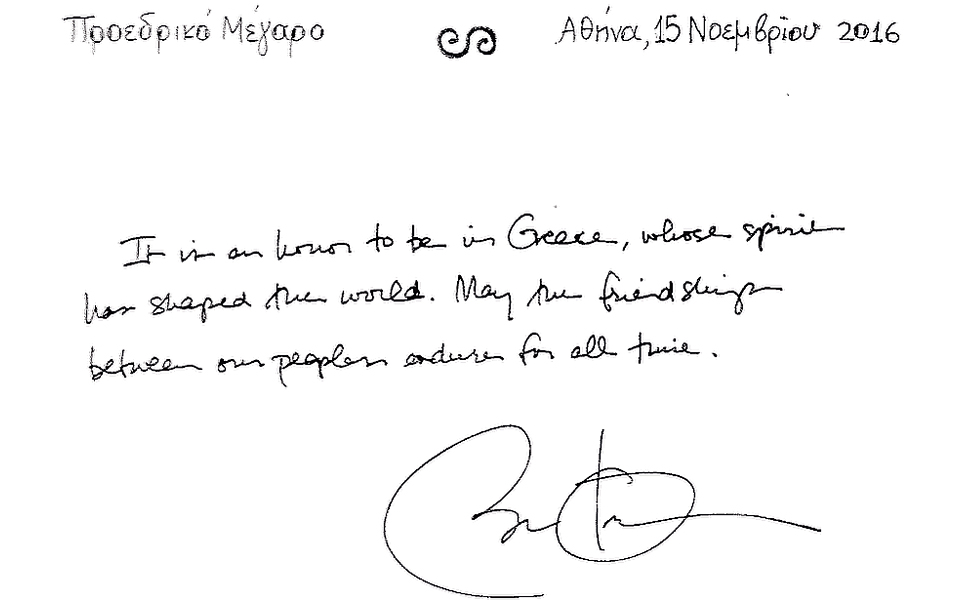 Προεδρικό Μέγαρο Αθήνα, 15 Νοεμβρίου 2016
It is an honor to be in Greece, whose spirit
has shaped the world. May the friendship
between our peoples endure for all time.